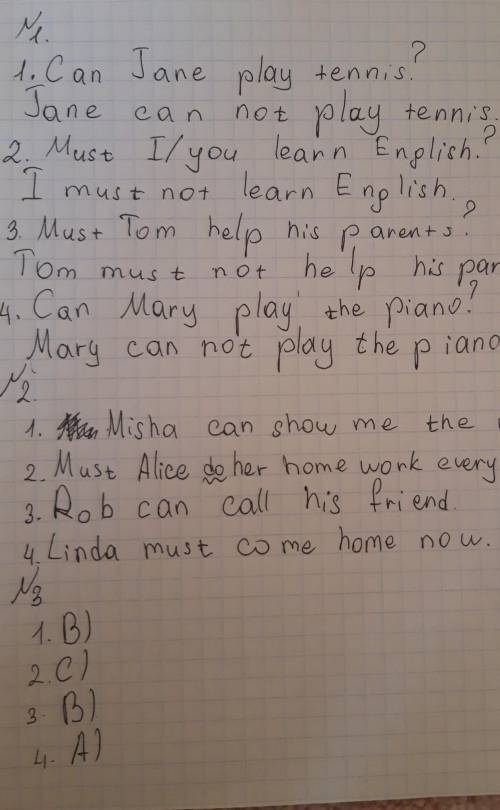 №1.
1. Can Jane play tennis?
Jane can not play tennis.
2. Must I/you learn English?
I must not learn English.
3. Must Tom help his parents?
Tom must not help his par
4. Can Mary play the piano?
Mary can not play the piano
№2.
1. Misha can show me the
2. Must Alice do her home work every
3. Rob can call his friend.
4. Linda must come home now.
№3
1. B)
2. C)
3. B)
4. A)